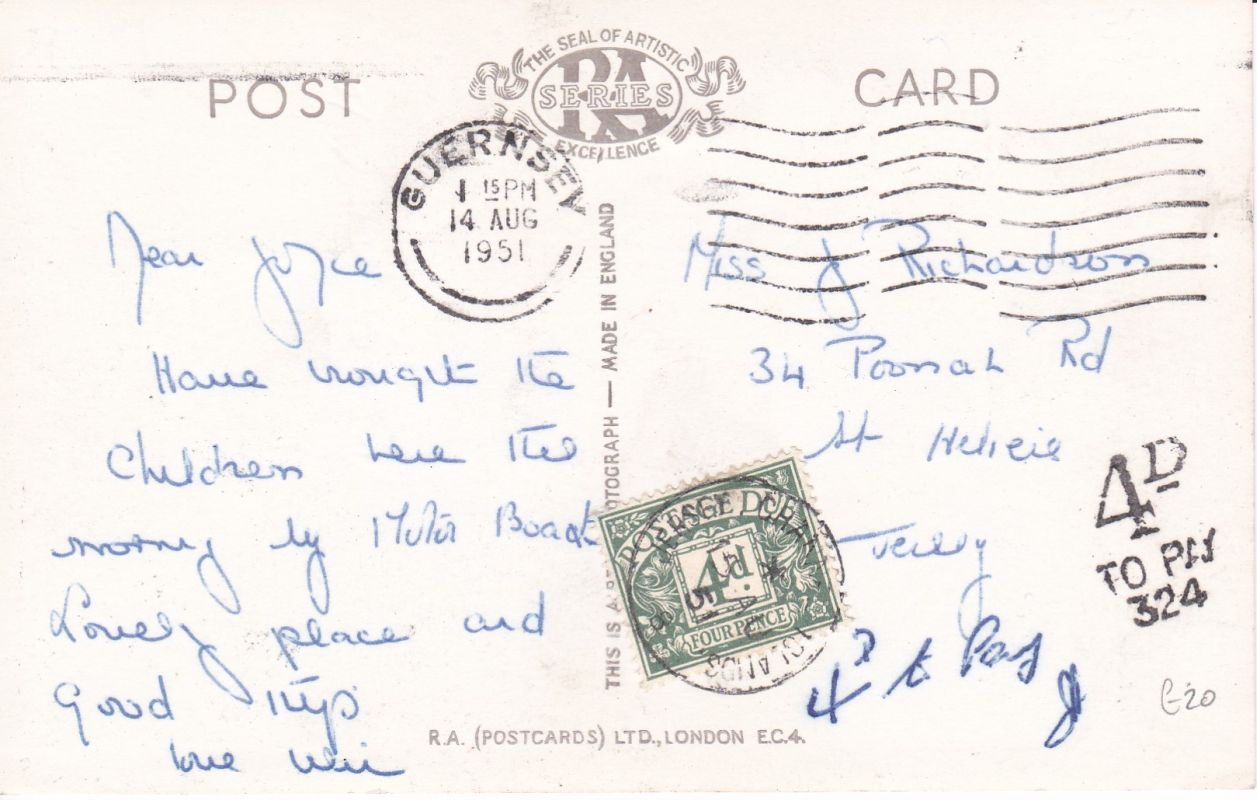 POST
CARD
THE SEAL OF ARTISTIC
RA
SERIES
EXCELLENCE
GUERNSEY
1 15 PM
14 AUG
1951
Dear Joyce
Have brought the
Children here the
morning by Motor Boat
Lovely place and
Good trip
love
THIS IS A REAL PHOTOGRAPH — MADE IN ENGLAND
Miss J Richardson
34 Poonah Rd
St Helier
Jersey
POSTAGE DUE
4d.
FOUR PENCE
CHANNEL
ISLANDS
4D
TO PAY
324
4d to Pay
£20
R.A. (POSTCARDS) LTD., LONDON E.C.4.